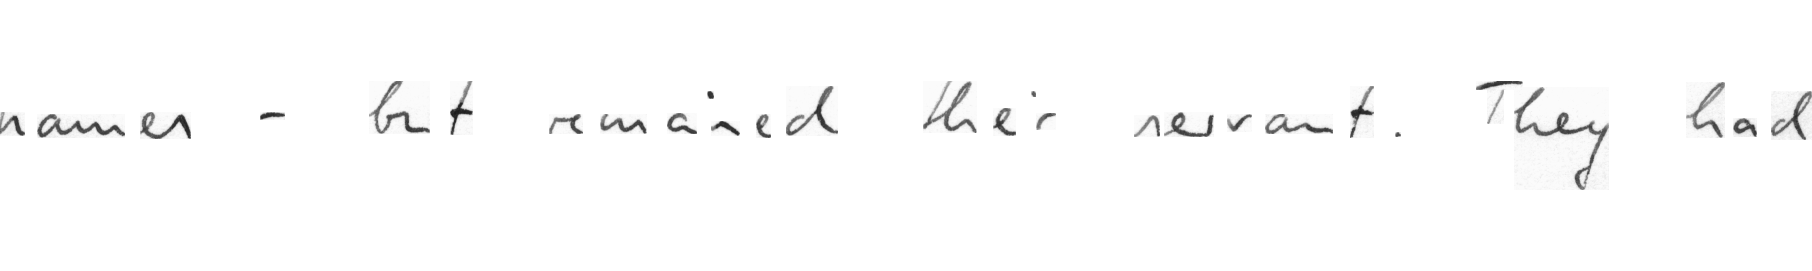 names - but remained their servant. They had